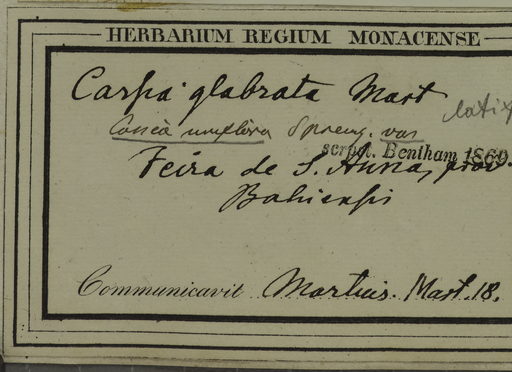 HERBARIUM REGIUM MONACENSE
Cassia glabrata Mart
Cassia uniflora Spreng. var
scripst. Bentham 1869.
Feira de S. Anna, prov
Bahiensis
Communicavit Martius. Mart. 18.